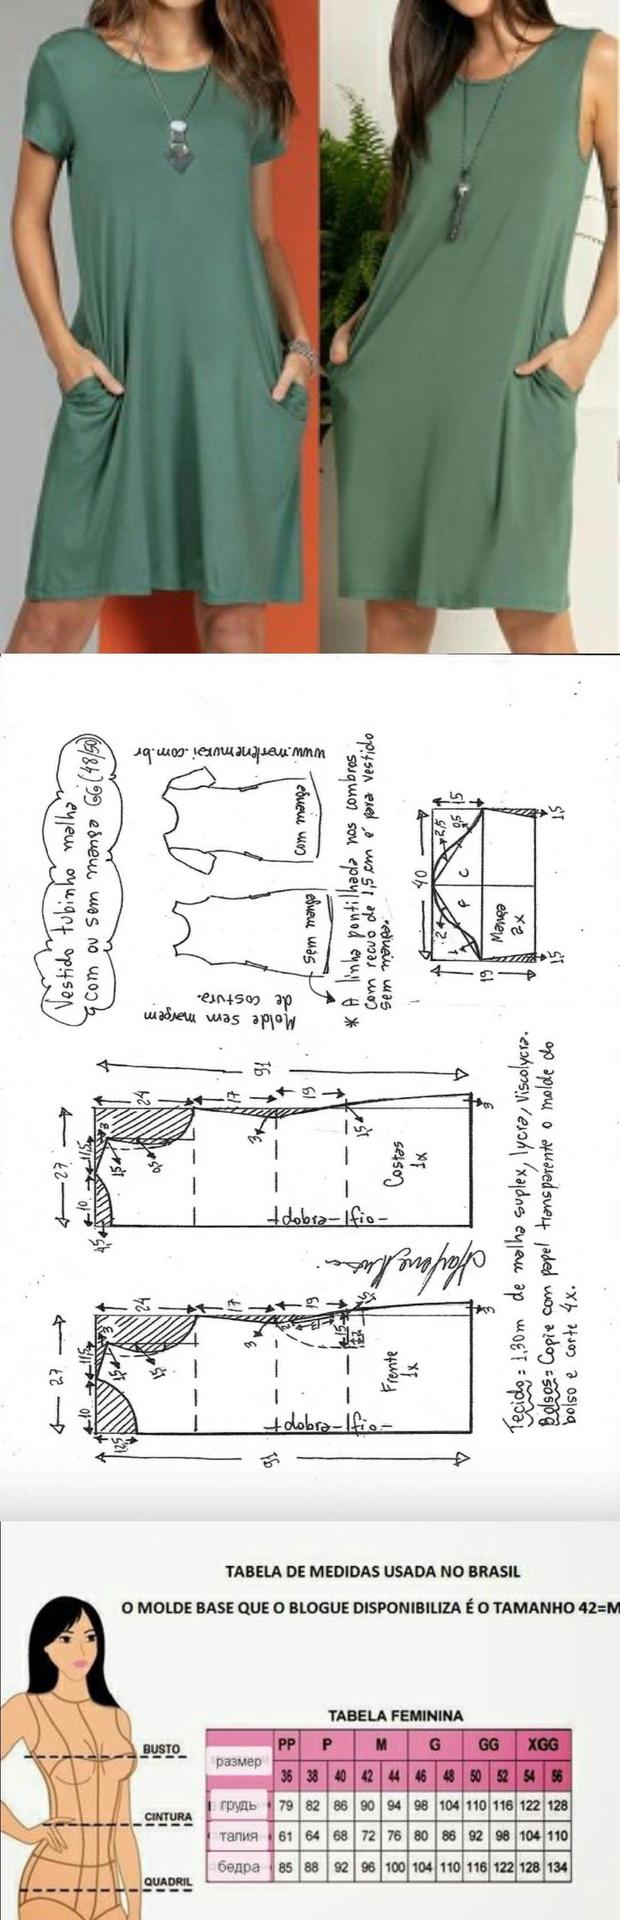 Vestido tubinho malha
com ou sem manga GG (48/50)
www.marlenemukai.com.br
com manga
sem manga
Molde sem margem
de costura.
* A linha pontilhada nos ombros
com recuo de 1,5 cm é para vestido
sem manga.
40
15
2,5
0,5
2
1
F
C
Manga
2x
19
15
15
27
10
11,5
4,5
3
1,5
0,5
24
17
19
91
3
1,5
3
-oifl-erdopt
Costas
1x
27
10
11,5
12,5
3
1,5
1,5
24
17
19
91
3
13
15
1,5
3
-oifl-erdopt
Frente
1x
Tecido = 1,30m de malha suplex, lycra, viscolycra.
Bolsos = Copie com papel transparente o molde do
bolso e corte 4x.
TABELA DE MEDIDAS USADA NO BRASIL
O MOLDE BASE QUE O BLOGUE DISPONIBILIZA É O TAMANHO 42=M
TABELA FEMININA
BUSTO
CINTURA
QUADRIL
размер PP P M G GG XGG
36 38 40 42 44 46 48 50 52 54 56
грудь 79 82 86 90 94 98 104 110 116 122 128
талия 61 64 68 72 76 80 86 92 98 104 110
бедра 85 88 92 96 100 104 110 116 122 128 134